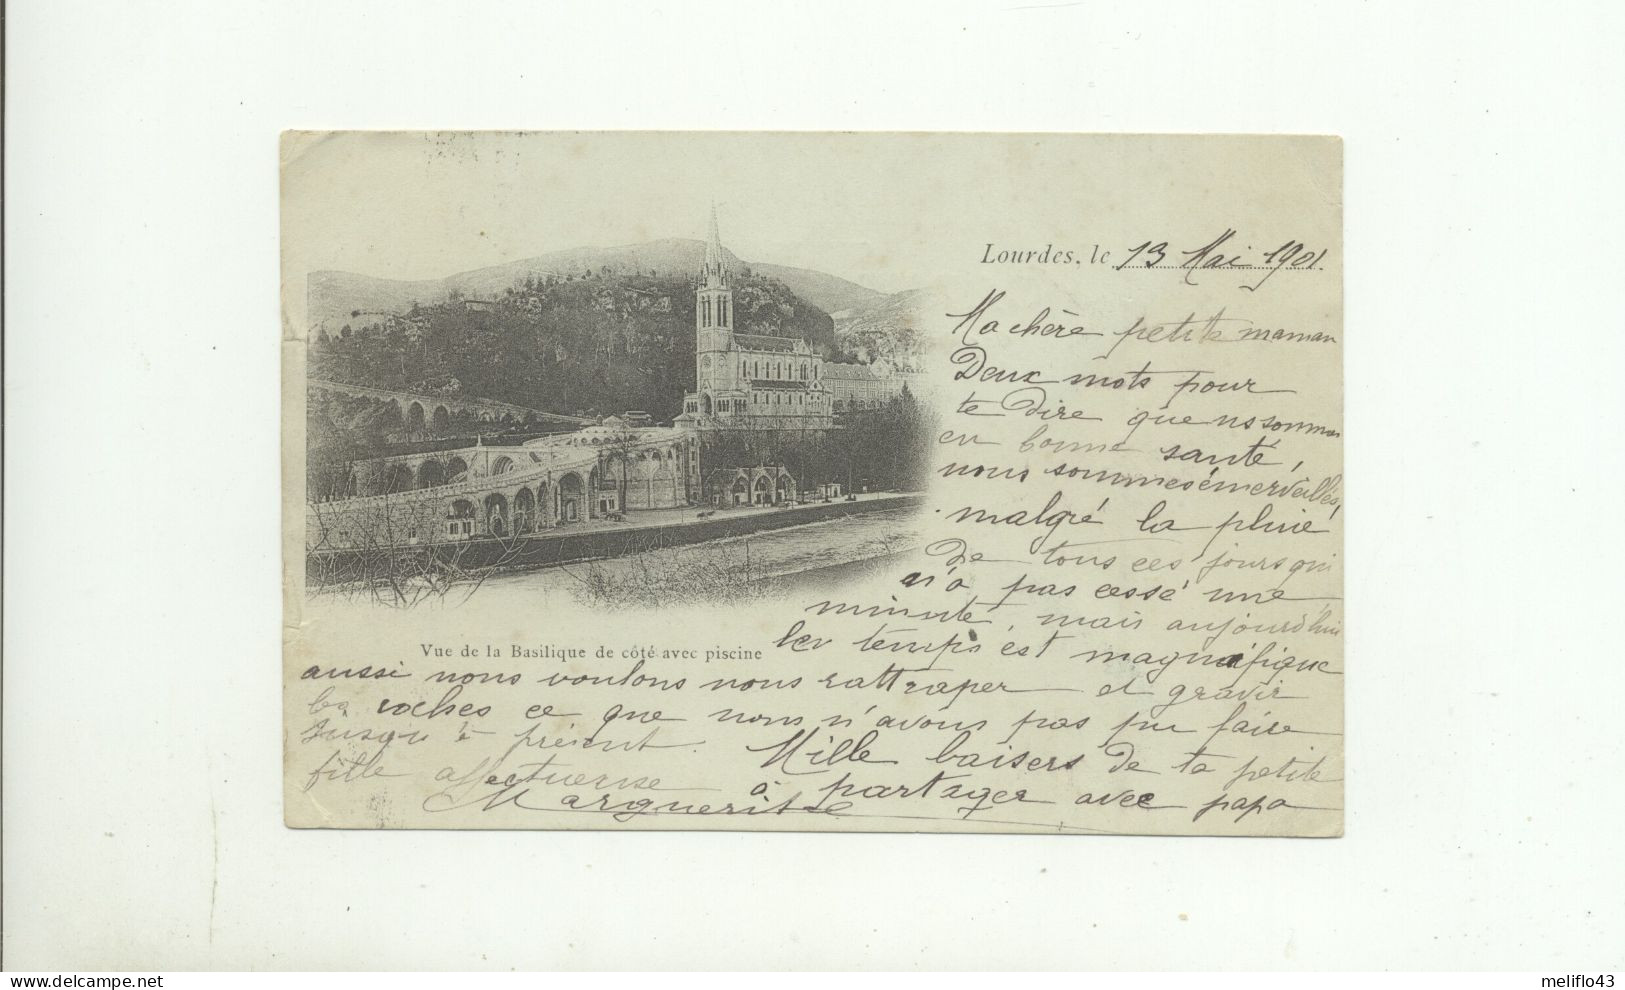 Lourdes, le 13 Mai 1901.
Ma chère petite maman
Deux mots pour
te dire que ns sommes
en bonne santé,
nous sommes émerveillés,
malgré la pluie
de tous ces jours qui
n'a pas cessé une
minute, mais aujourd'hui
le temps est magnifique
Vue de la Basilique de côté avec piscine
aussi nous voulons nous rattraper et gravir
les roches ce que nous n'avons pas pu faire
jusqu'à présent. Mille baisers de ta petite
fille affectueuse à partager avec papa
Marguerite
meliflo43